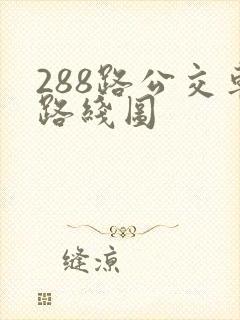 288路公交车
路线图
缝凉